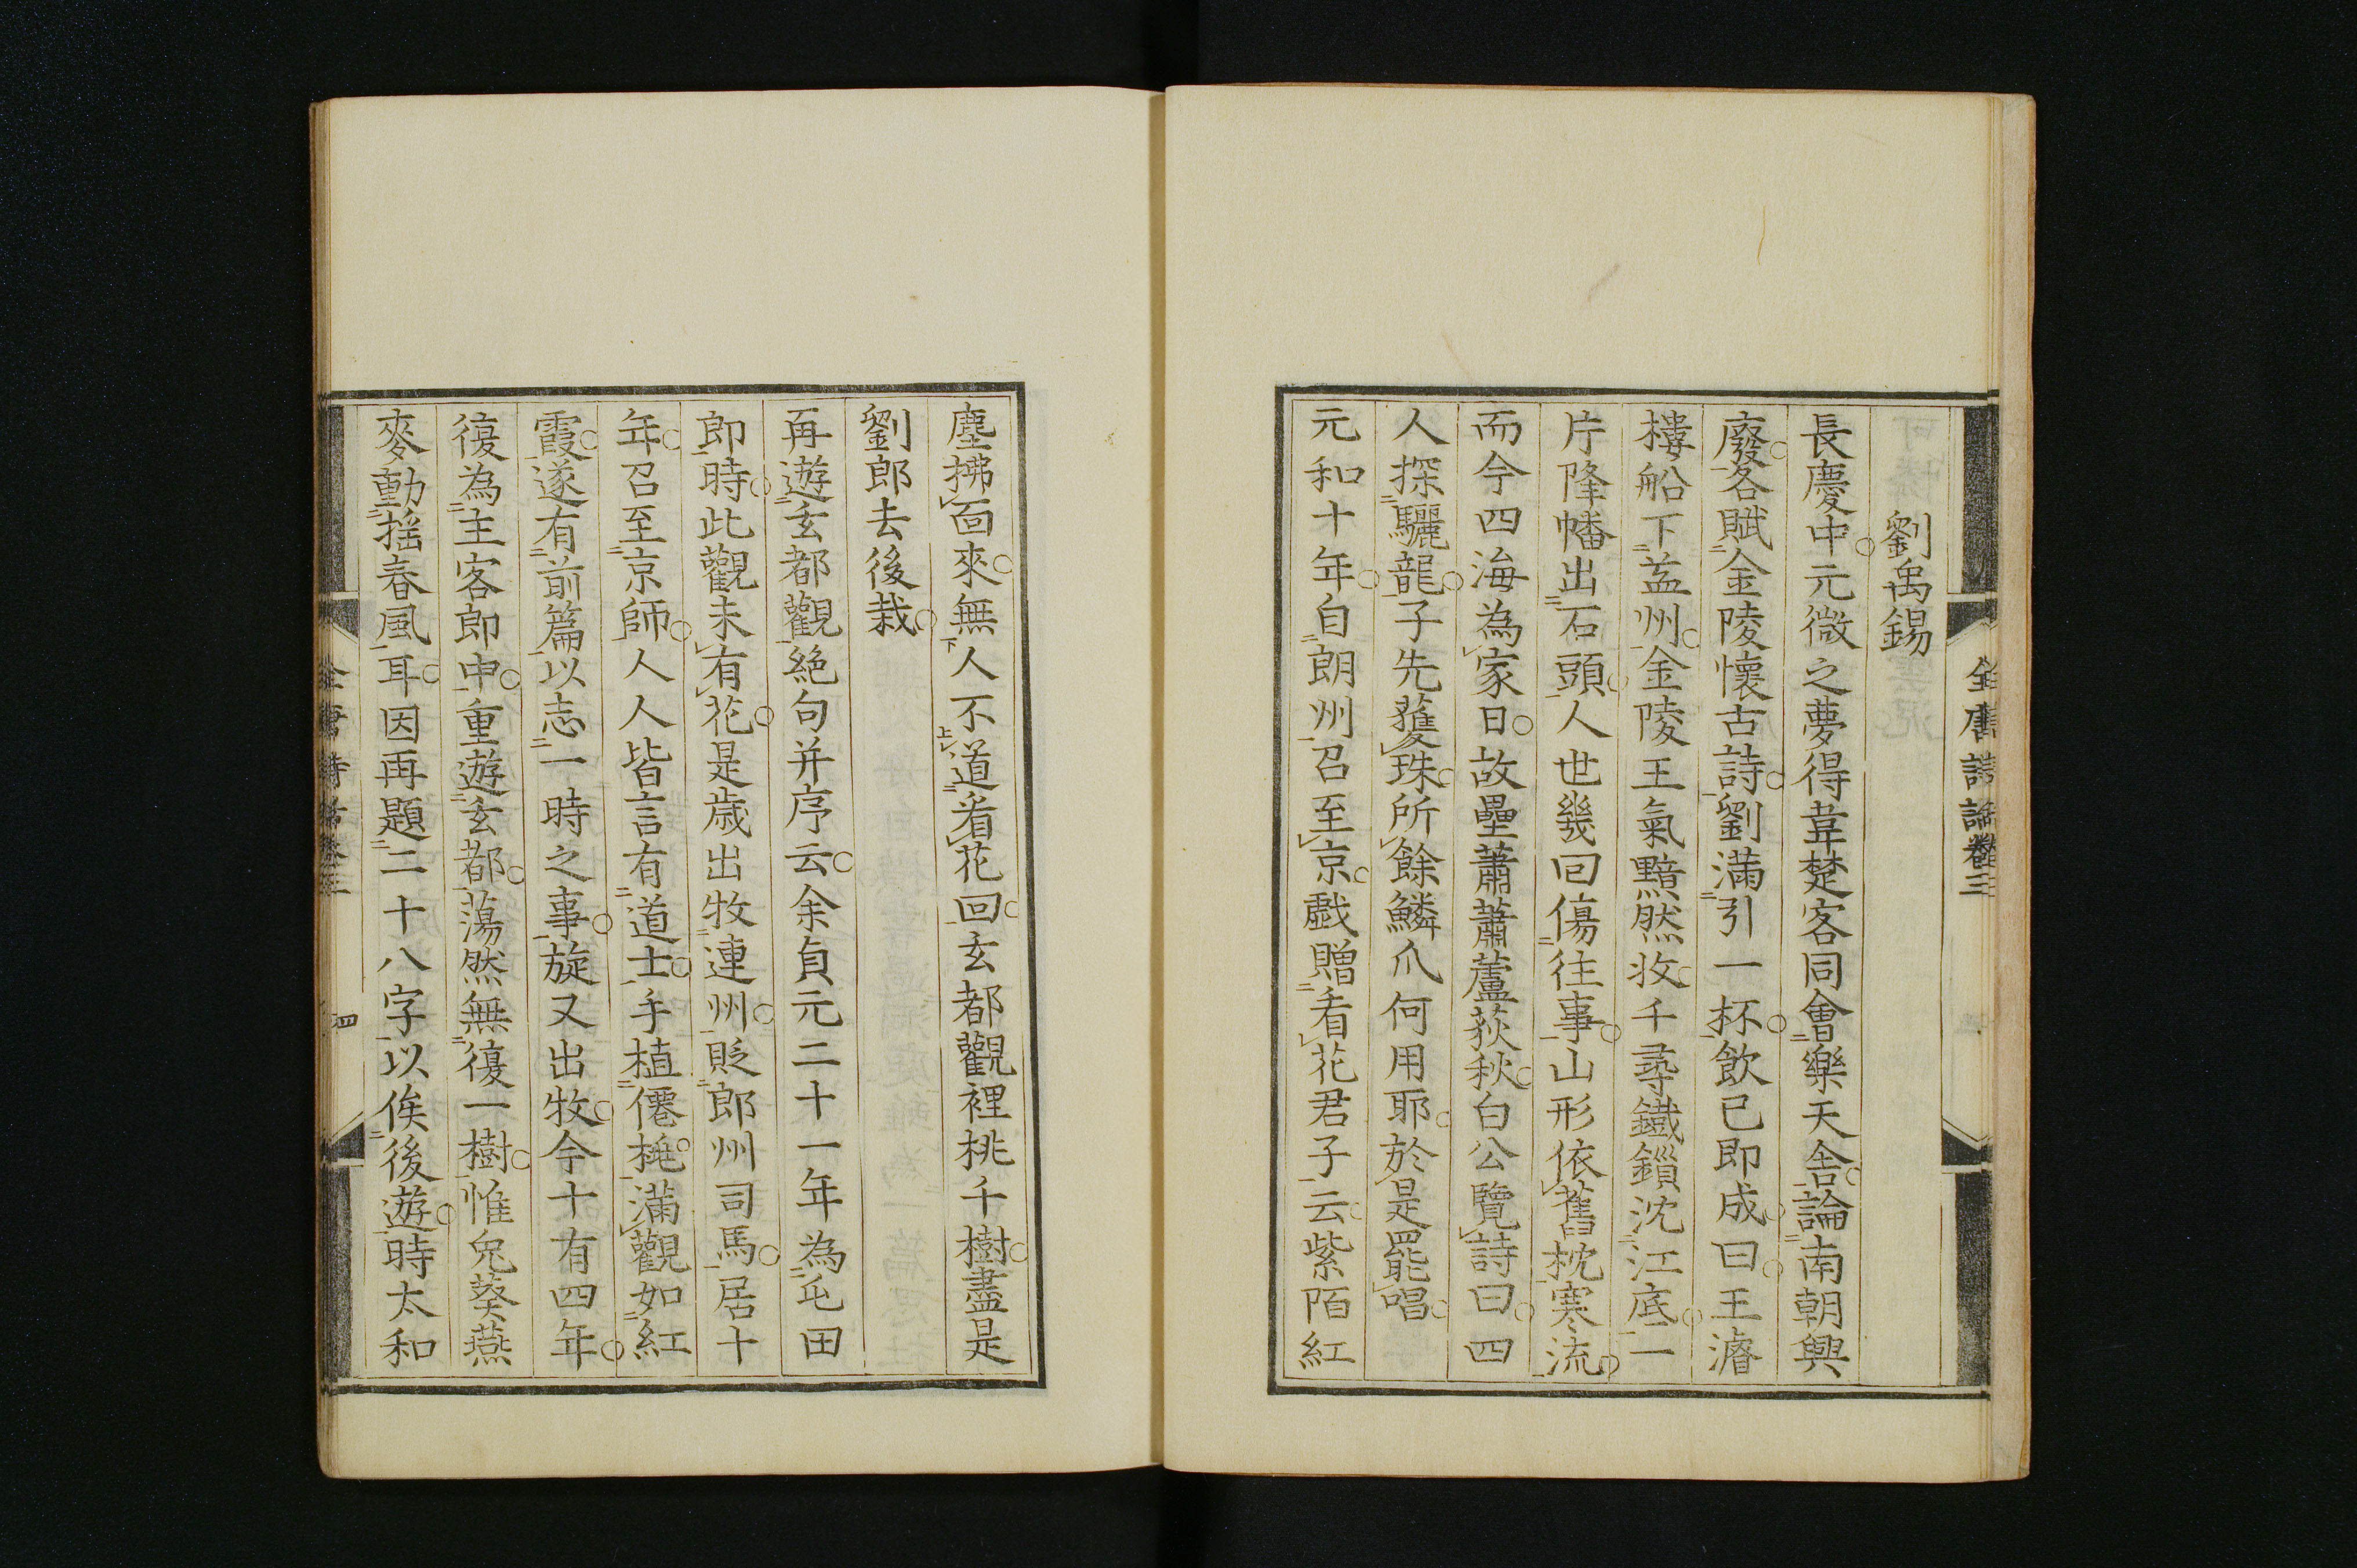 劉禹錫
長慶中元微之夢得韋楚客同會樂天舍論南朝興
廢各賦金陵懷古詩劉滿引一杯飲已即成曰王濬
樓船下益州金陵王氣黯然收千尋鐵鎖沈江底一
片降幡出石頭人世幾回傷往事山形依舊枕寒流
而今四海為家日故壘蕭蕭蘆荻秋白公覽詩曰四
人探驪龍子先獲珠所餘鱗爪何用耶於是罷唱
元和十年自朗州召至京戲贈看花君子云紫陌紅
塵拂面來無人不道看花回玄都觀裡桃千樹盡是
劉郎去後栽
再遊玄都觀絕句并序云余貞元二十一年為屯田
郎時此觀未有花是歲出牧連州貶郎州司馬居十
年召至京師人人皆言有道士手植僊桃滿觀如紅
霞遂有前篇以志一時之事旋又出牧今十有四年
復為主客郎中重遊玄都蕩然無復一樹惟兔葵燕
麥動搖春風耳因再題二十八字以俟後遊時太和
全唐詩話卷三
四